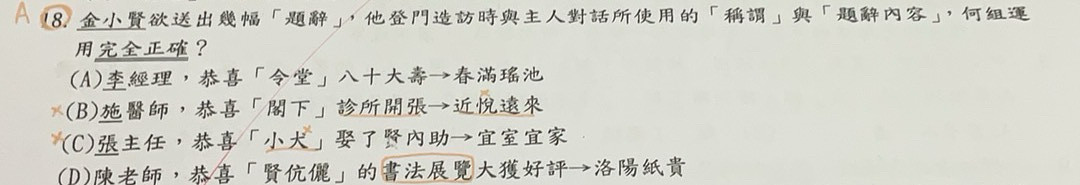 A 18. 金小賢欲送出幾幅「題辭」，他登門造訪時與主人對話所使用的「稱謂」與「題辭內容」，何組運
用完全正確？
(A)李經理，恭喜「令堂」八十大壽→春滿瑤池
×(B)施醫師，恭喜「閣下」診所開張→近悅遠來
×(C)張主任，恭喜「小犬」娶了賢內助→宜室宜家
(D)陳老師，恭喜「賢伉儷」的書法展覽大獲好評→洛陽紙貴